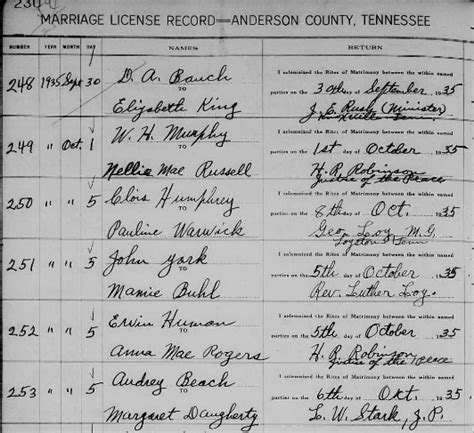 230
MARRIAGE LICENSE RECORD—ANDERSON COUNTY, TENNESSEE
NUMBER YEAR MONTH DAY NAMES RETURN
248 1935 Sept 30 D. A. Bauch I solemnized the Rites of Matrimony between the within named
TO parties on the 30th day of September 1935
Elizabeth King J. E. Rush (Minister)
Tenn
249 " Oct. 1 W. H. Murphy I solemnized the Rites of Matrimony between the within named
TO parties on the 1st day of October 1935
Nellie Mae Russell H. R. Robinson
Justice of the Peace
250 " " 5 Clois Humphrey I solemnized the Rites of Matrimony between the within named
TO parties on the 8th day of Oct. 1935
Pauline Warwick Geo. Loy M. G.
Loyston Tenn
251 " " 5 John York I solemnized the Rites of Matrimony between the within named
TO parties on the 5th day of October 1935
Mamie Buhl Rev. Luther Loy.
252 " " 5 Ervin Human I solemnized the Rites of Matrimony between the within named
TO parties on the 5th day of October 1935
Anna Mae Rogers H. R. Robinson
Justice of the Peace
253 " " 5 Audrey Beach I solemnized the Rites of Matrimony between the within named
TO parties on the 6th day of Oct. 1935
Margaret Daugherty L. W. Stark, J. P.